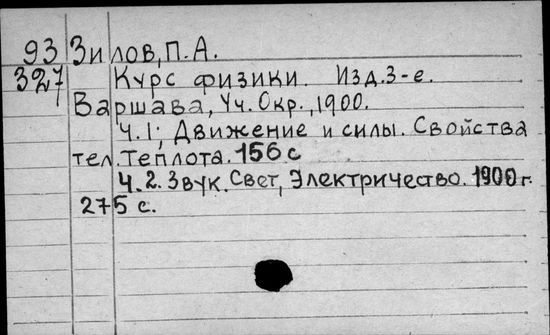 93 Зилов, П.А.
327 Курс физики. Изд.3-е.
Варшава, Уч. Окр., 1900.
Ч.1; Движение и силы. Свойства
тел. Теплота. 156 с
Ч.2. Звук. Свет, Электричество. 1900г.
275 с.